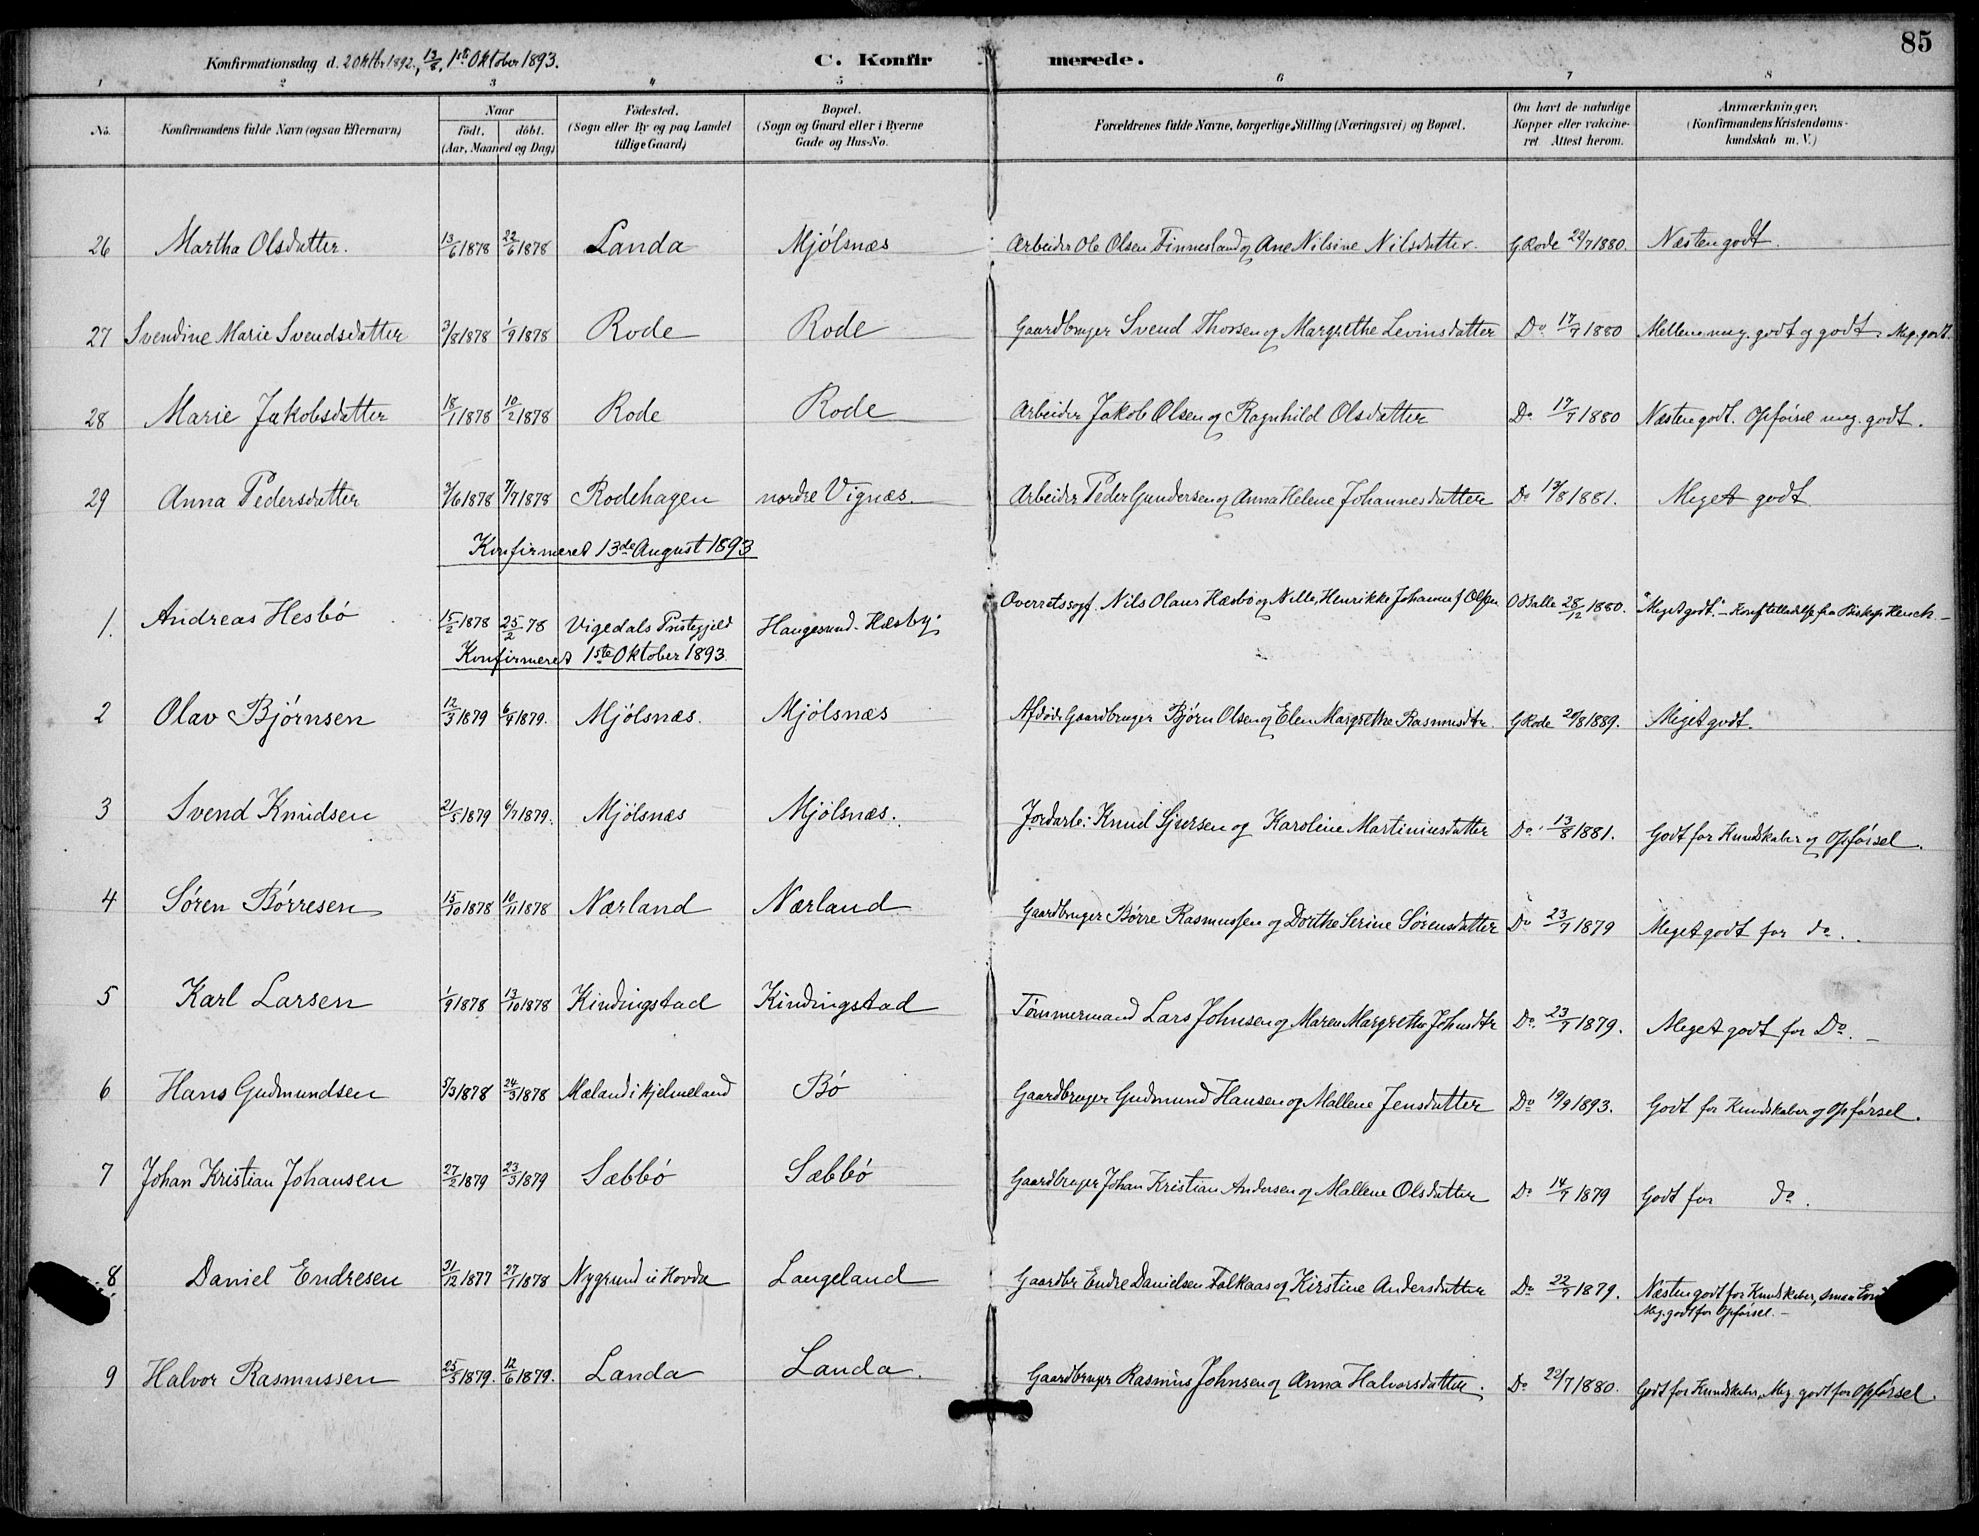 85
Konfirmationsdag d. 2 Oktbr 1892, 13/8, 1ste Oktober 1893. C. Konfirmerede.
1 2 3 4 5 6 7 8
No. Konfirmandens fulde Navn (ogsaa Efternavn) Naar født. døbt. (Aar, Maaned og Dag) Fødested. (Sogn eller By og paa Landet tillige Gaard) Bopæl. (Sogn og Gaard eller i Byerne Gade og Hus-No. Forældrenes fulde Navne, borgerlige Stilling (Næringsvei) og Bopæl. Om havt de naturlige Kopper eller vakcineret Attest herom. Anmærkninger. (Konfirmandens Kristendomskundskab m. V.)
26 Martha Olsdatter. 13/6 1878 22/6 1878 Landa Mjölsnæs Arbeider Ole Olsen Finnesland og Ane Nilsine Nilsdatter. G Rode 22/7 1880. Næsten godt.
27 Svendine Marie Svendsdatter 3/8 1878 1/9 1878 Rode Rode Gaardbruger Svend Thorsen og Margrethe Levinsdatter Do 17/7 1880 Mellem meg. godt og godt. Meg. godt.
28 Marie Jakobsdatter 18/1 1878 10/2 1878 Rode Rode Arbeider Jakob Olsen og Ragnhild Olsdatter Do 17/7 1880 Næsten godt. Opførsel meg. godt.
29 Anna Pedersdatter 3/6 1878 7/7 1878 Rodehagen nordre Vignæs. Arbeider Peder Gundersen og Anna Helene Johannesdatter Do 13/8 1881. Meget godt.
Konfirmeret 13de August 1893
1. Andreas Hesbö 15/2 1878 25/2 78 Vigedals Prstegjeld Haugesund - Hæsby Overretssagf. Nils Olaus Hæsbö og Nille Henrikke Johanne f. Olsen O Balle 28/12 1880. "Meget godt". - fra Biskop Heuch. -
Konfirmeret 1ste Oktober 1893.
2 Olav Bjørnsen 12/3 1879 6/4 1879. Mjölsnæs. Mjölsnæs Afdøde Gaardbruger Bjørn Olsen og Elen Margrethe Rasmusdtr. G Rode 20/8 1889. Meget godt.
3 Svend Knudsen 21/5 1879 6/7 1879. Mjölsnæs Mjölsnæs. Jordarb: Knud Sjursen og Karoline Martiniusdatter Do 13/8 1881. Godt for Kundskaber og Opførsel.
4 Søren Börresen 15/10 1878 10/11 1878 Nærland Nærland Gaardbruger Børre Rasmussen og Dorthe Serine Sørensdatter Do 23/7 1879 Meget godt for do.
5 Karl Larsen 1/9 1878 13/10 1878 Kindingstad Kindingstad Tømmermand Lars Johnsen og Maren Margrethe Johnsdtr Do. 23/7 1879. Meget godt for Do. -
6 Hans Gudmundsen 5/3 1878 24/3 1878 Mæland i Hjelmeland Bö Gaardbruger Gudmund Hansen og Mallene Jensdatter Do 19/9 1893. Godt for Kundskaber og Opførsel.
7 Johan Kristian Johansen 27/2 1879 23/3 1879 Sæbbö Sæbbö Gaardbruger Johan Kristian Andersen og Mallene Olsdatter Do 14/7 1879 Godt for do.
8 Daniel Endresen 31/12 1877 27/1 1878 Nygrund u Hovda Langeland Gaardbr Endre Danielsen Falkaas og Kirstine Andersdatter Do 22/7 1879. Næsten godt for Kundskaber, smaa
Meg. godt for Opførsel. -
9 Halvor Rasmussen 25/5 1879. 12/6 1879. Landa Landa. Gaardbruger Rasmus Johnsen og Anna Halvorsdatter. Do 22/7 1880. Godt for Kundskaber, Meg. godt for Opførsel.